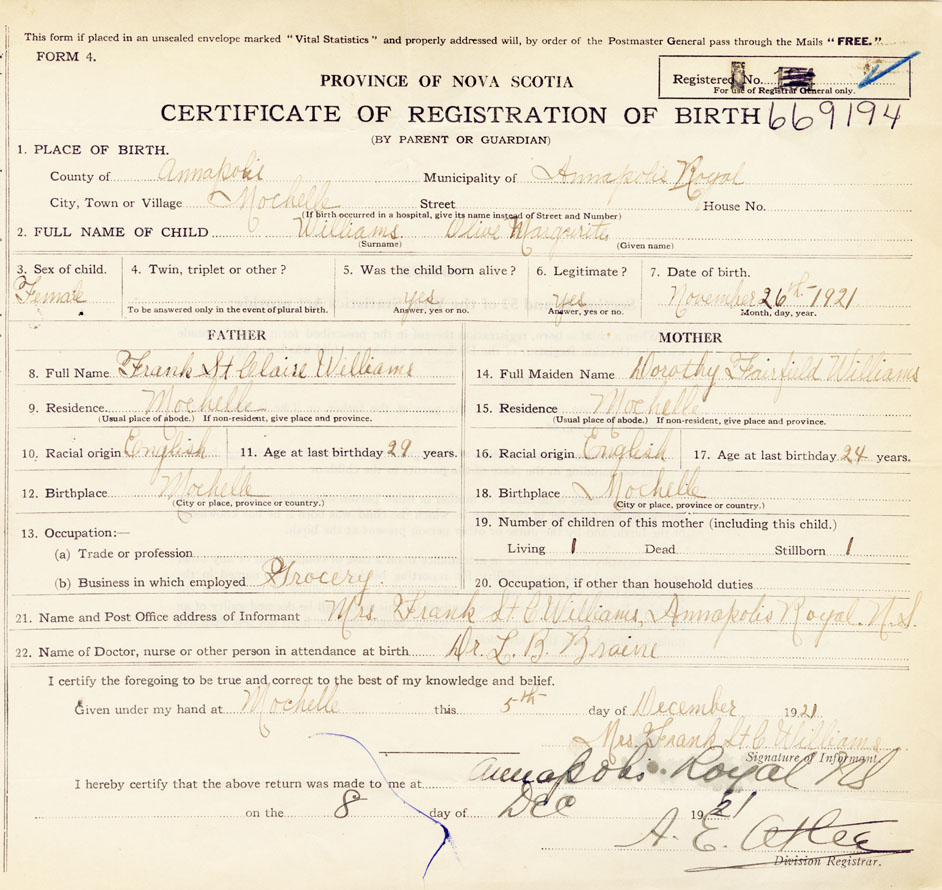 This form if placed in an unsealed envelope marked "Vital Statistics" and properly addressed will, by order of the Postmaster General pass through the Mails "FREE."
FORM 4.
PROVINCE OF NOVA SCOTIA
Registered No.
For use of Registrar General only.
CERTIFICATE OF REGISTRATION OF BIRTH 669194
(BY PARENT OR GUARDIAN)
1. PLACE OF BIRTH.
County of Annapolis Municipality of Annapolis Royal
City, Town or Village Mochelle Street House No.
(If birth occurred in a hospital, give its name instead of Street and Number)
2. FULL NAME OF CHILD Williams Olive Marguirite
(Surname) (Given name)
3. Sex of child. 4. Twin, triplet or other? 5. Was the child born alive? 6. Legitimate? 7. Date of birth.
Female yes yes November 26th 1921
To be answered only in the event of plural birth. Answer, yes or no. Answer, yes or no. Month, day, year.
FATHER MOTHER
8. Full Name Frank St Claire Williams 14. Full Maiden Name Dorothy Fairfield Williams
9. Residence. Mochelle 15. Residence Mochelle
(Usual place of abode.) If non-resident, give place and province. (Usual place of abode.) If non-resident, give place and province.
10. Racial origin English 11. Age at last birthday 29 years. 16. Racial origin English 17. Age at last birthday 24 years.
12. Birthplace Mochelle 18. Birthplace Mochelle
(City or place, province or country.) (City or place, province or country.)
13. Occupation:— 19. Number of children of this mother (including this child.)
(a) Trade or profession Living 1 Dead Stillborn 1
(b) Business in which employed Grocery. 20. Occupation, if other than household duties
21. Name and Post Office address of Informant Mrs. Frank St C. Williams, Annapolis Royal. N.S.
22. Name of Doctor, nurse or other person in attendance at birth Dr. L. B. Braine
I certify the foregoing to be true and correct to the best of my knowledge and belief.
Given under my hand at Mochelle this 5th day of December 1921
Mrs. Frank St C Williams
Signature of Informant.
I hereby certify that the above return was made to me at Annapolis Royal NS
on the 8 day of Dec 1921
A. E.
Division Registrar.